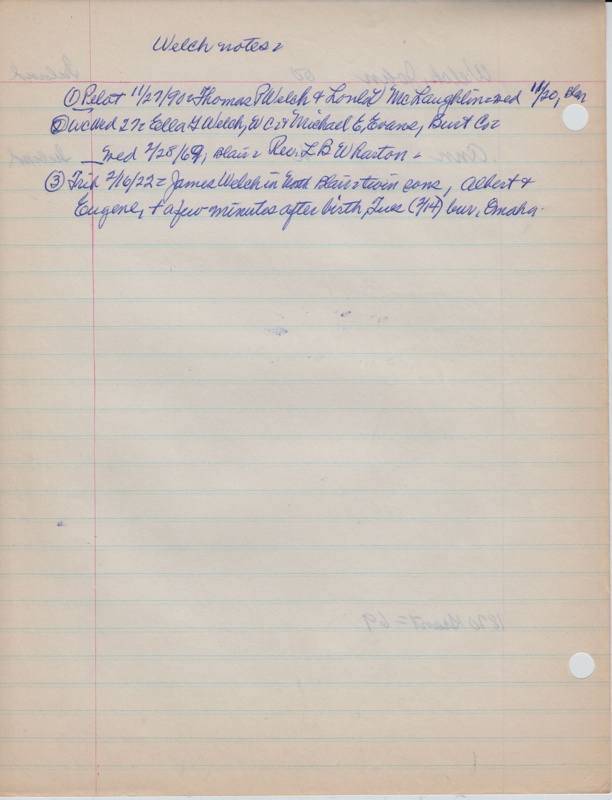 Welch notes=
① Pilot 11/27/90= Thomas P Welch & Lould) McLaughlin=wed 11/20, Blair
② WCWed 27= Ella G Welch, W C= & Michael E, Evans, Burt Co=
wed 2/28/69, Blair= Rev. L B Wharton=
③ Trib 2/16/22= James Welch in Blair= twin sons, Albert &
Eugene, + a few minutes after birth, Tues (2/14) bur, Omaha-